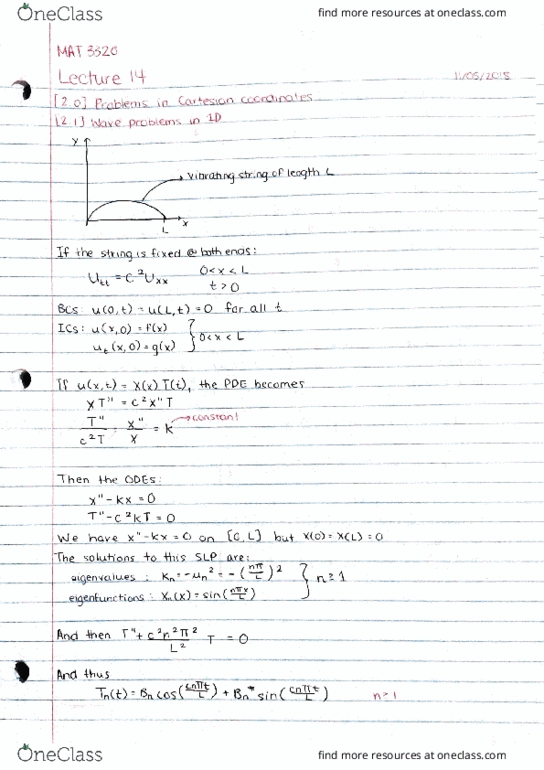 OneClass
find more resources at oneclass.com
MAT 3320
Lecture 14
11/05/2015
[2.0] Problems in Cartesian coordinates
[2.1] Wave problems in 1D
y
vibrating string of length L
L x
If the string is fixed @ both ends:
Utt = c²Uxx 0<x<L
t>0
BCs: u(0,t) = u(L,t) = 0 for all t
ICs: u(x,0) = f(x)
ut(x,0) = g(x) } 0<x<L
If u(x,t) = X(x) T(t), the PDE becomes
XT" = c²X"T
T"/c²T = X"/X = K → constant
Then the ODEs:
X" - kx = 0
T" - c²kT = 0
We have x" - kx = 0 on [0,L] but X(0) = X(L) = 0
The solutions to this SLP are:
eigenvalues : Kn = -μn² = -(nπ/L)²
eigenfunctions : Xn(x) = sin(nπx/L) } n≥1
And then T" + c²n²π²/L² T = 0
And thus
Tn(t) = Bn cos(cnπt/L) + Bn* sin(cnπt/L) n≥1
OneClass
find more resources at oneclass.com